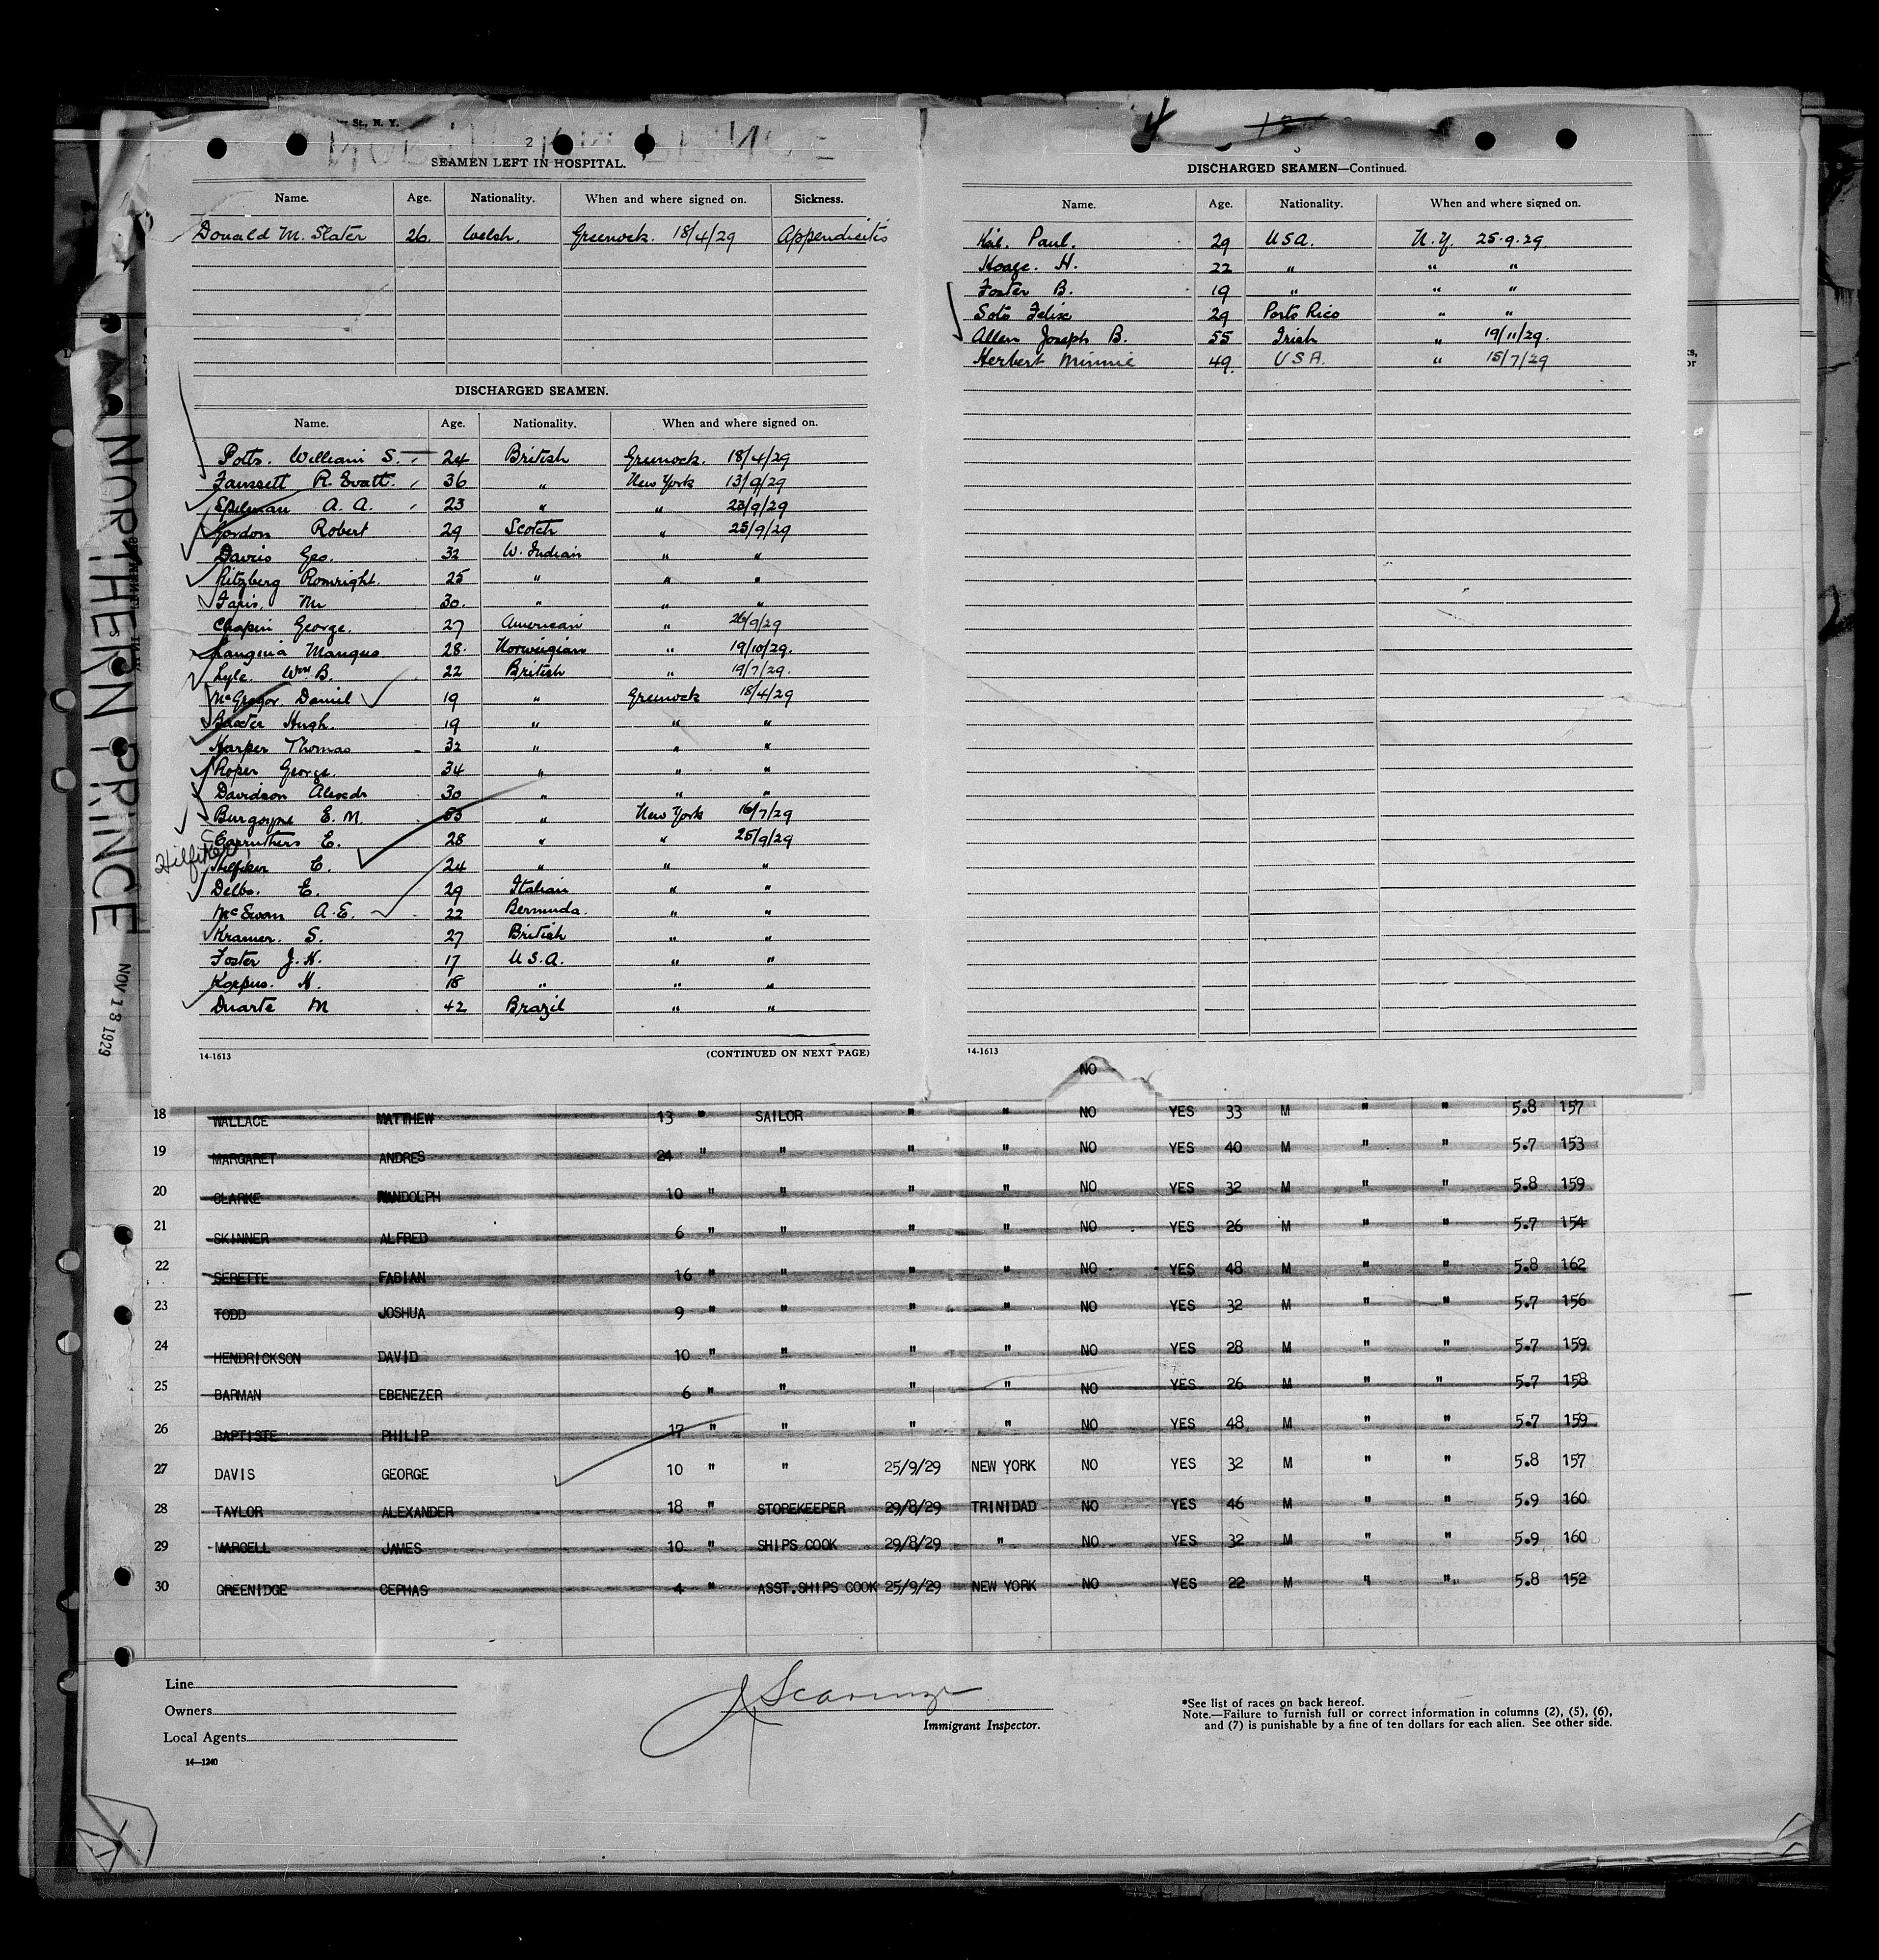 St., N. Y.
2
SEAMEN LEFT IN HOSPITAL.
Name. Age. Nationality. When and where signed on. Sickness.
Donald M. Slater 26. Welsh. Greenock. 18/4/29 Appendicitis
DISCHARGED SEAMEN.
Name. Age. Nationality. When and where signed on.
Potts. William S. 24 British Greenock. 18/4/29
Faussett R. Evatt. 36 " New York 13/9/29
Spelman A. A. 23 " " 23/9/29
Gordon Robert 29 Scotch " 25/9/29
Davis Geo. 32 W. Indian " "
Ritzberg Romright. 25 " " "
Faris. M 30. " " "
Chapin George. 27 American " 26/9/29
Langina Mangus 28. Norweigian " 19/10/29.
Lyle. Wm B. 22 British " 19/7/29.
McGregor. Daniel 19 " Greenock 18/4/29
Baxter Hugh. 19 " " "
Harper Thomas 32 " " "
Roper George. 34 " " "
Davidson Alexdr 30 " " "
Burgoyne E. M. 53 " New York 16/7/29
Carruthers E. 28 " " 25/9/29
Hilfiker
Hilfiker C. 24 " " "
Delbo. E. 29 Italian " "
McEwan A. E. 22 Bermuda. " "
Kramer. S. 27 British " "
Foster J. H. 17 U.S.A. " "
Korpus. H. 18 " " "
Duarte M 42 Brazil " "
14-1613 (CONTINUED ON NEXT PAGE)
4 12
3
DISCHARGED SEAMEN—Continued.
Name. Age. Nationality. When and where signed on.
Kail. Paul. 29 USA. N.Y. 25.9.29
Hoage. H. 22 " " "
Foster B. 19 " " "
Soto Felix 29 Porto Rico " "
Allen Joseph B. 55 Irish " 19/11/29.
Herbert Minnie 49. USA. " 15/7/29
14-1613
NORTHERN PRINCE
NOV 18 1929
NO
18 WALLACE MATTHEW 13 " SAILOR " " NO YES 33 M " " 5.8 157
19 MARGARET ANDRES 24 " " " " NO YES 40 M " " 5.7 153
20 CLARKE RANDOLPH 10 " " " " NO YES 32 M " " 5.8 159
21 SKINNER ALFRED 6 " " " " NO YES 26 M " " 5.7 154
22 SERETTE FABIAN 16 " " " " NO YES 48 M " " 5.8 162
23 TODD JOSHUA 9 " " " " NO YES 32 M " " 5.7 156
24 HENDRICKSON DAVID 10 " " " " NO YES 28 M " " 5.7 159
25 BARMAN EBENEZER 6 " " " " NO YES 26 M " " 5.7 158
26 BAPTISTE PHILIP 17 " " " " NO YES 48 M " " 5.7 159
27 DAVIS GEORGE 10 " " 25/9/29 NEW YORK NO YES 32 M " " 5.8 157
28 TAYLOR ALEXANDER 18 " STOREKEEPER 29/8/29 TRINIDAD NO YES 46 M " " 5.9 160
29 MARCELL JAMES 10 " SHIPS COOK 29/8/29 " NO YES 32 M " " 5.9 160
30 GREENIDGE CEPHAS 4 " ASST. SHIPS COOK 25/9/29 NEW YORK NO YES 22 M " " 5.8 152
Line
Owners
Local Agents
14—1240
Immigrant Inspector.
*See list of races on back hereof.
Note.—Failure to furnish full or correct information in columns (2), (5), (6),
and (7) is punishable by a fine of ten dollars for each alien. See other side.